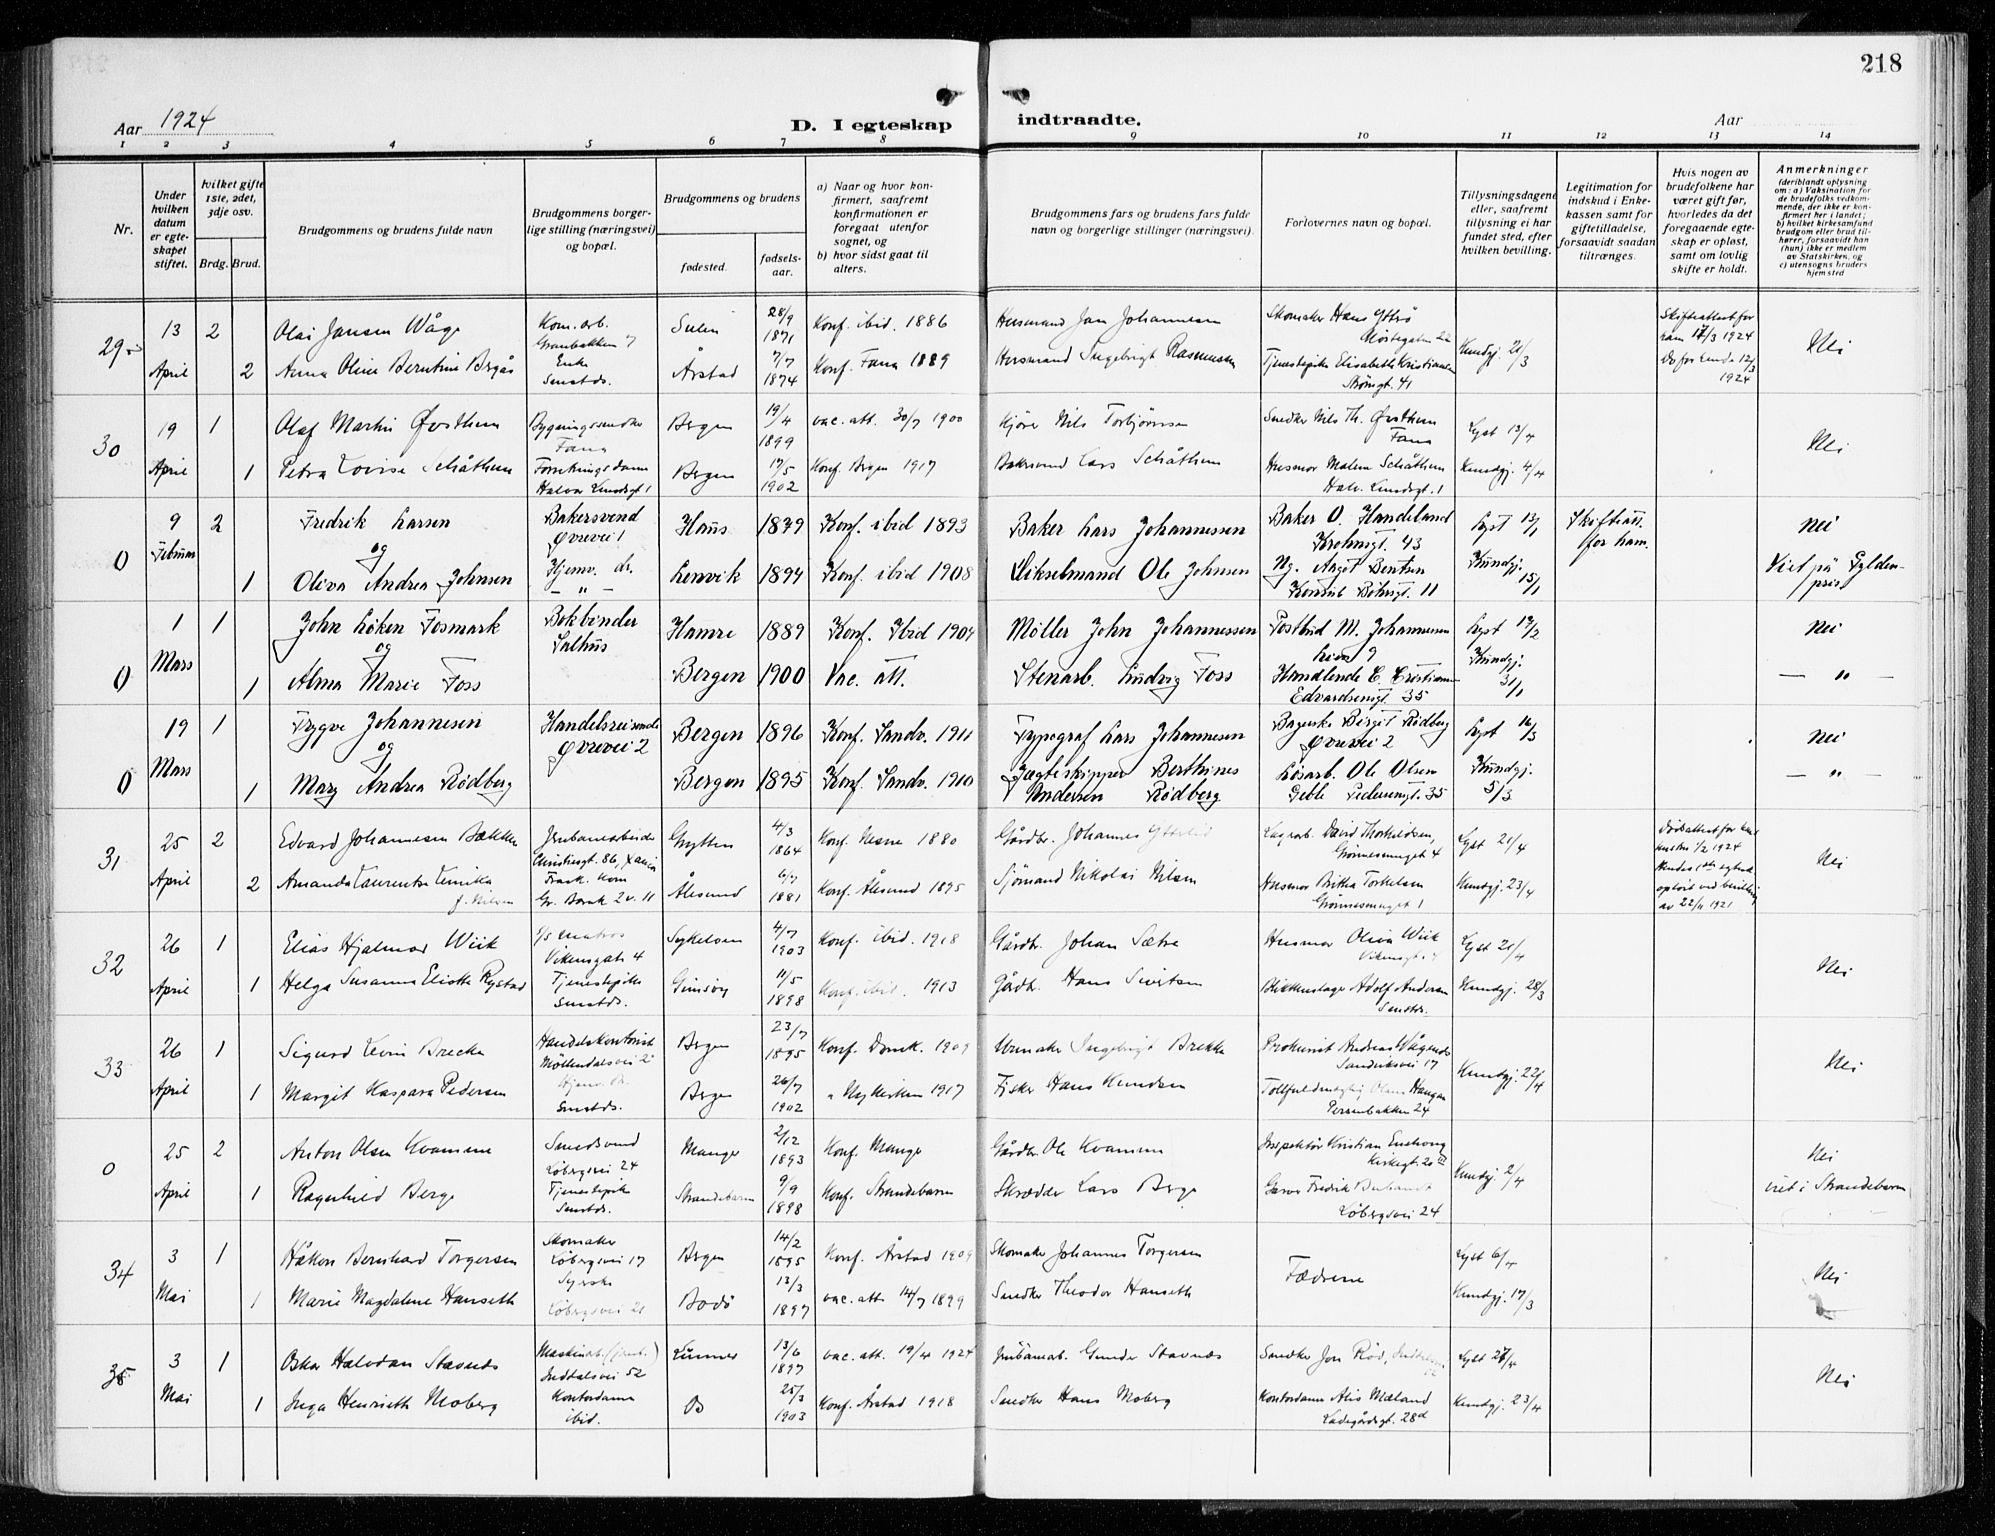 218
Aar 1924
D. I egteskap indtraadte.
Aar
1 2 3 4 5 6 7 8 9 10 11 12 13 14
Nr.
Under hvilken datum er egteskapet stiftet.
hvilket gifte 1ste, 2det, 3dje osv.
Brdg. Brud.
Brudgommens og brudens fulde navn
Brudgommens borgerlige stilling (næringsvei) og bopæl.
Brudgommens og brudens
fødested.
fødselsaar.
a) Naar og hvor konfirmert, saafremt konfirmationen er foregaat utenfor sognet, og
b) hvor sidst gaat til alters.
Brudgommens fars og brudens fars fulde navn og borgerlige stillinger (næringsvei).
Forlovernes navn og bopæl.
Tillysningsdagene eller, saafremt tillysning ei har fundet sted, efter hvilken bevilling.
Legitimation for indskud i Enkekassen samt for giftetilladelse, forsaavidt saadan tiltrænges.
Hvis nogen av brudefolkene har været gift før, hvorledes da det foregaaende egteskap er opløst, samt om lovlig skifte er holdt.
Anmerkninger
(deriblandt oplysning om: a) Vaksination for de brudefolks vedkommende, der ikke er konfirmert her i landet; b) hvilket kirkesamfund brudgom eller brud tilhører, forsaavidt han (hun) ikke er medlem av Statskirken, og c) utensogns bruders hjemsted
29 13 April 2 Olai Jansen Våge Kom. arb. Granbakken 7 Sulen 28/9 1871 Konf. ibid. 1886 Husmand Jan Johannesen Skomaker Hans Ytterø Kundgj. 21/3 Skifteattest for ham 17/3 1924 Nei
2 Anna Oline Berntine Bergås Enke Smstds. Årstad 7/7 1874 Konf. Fana 1889 Husmand Ingebrigt Rasmussen Tjenestepike Elisabeth Kristiansen Strømgt. 41 Do for henne 12/3 1924
30 19 April 1 Olaf Martin Østhem Bygningssnedker Fana Bergen 19/4 1899 vac. att. 30/7 1900 Kjører Nils Torbjørnsen Snedker Nils Th. Østhem Fana Lyst 13/4 Nei
1 Petra Lovise Schåthun Forretningsdame Bergen 17/5 1902 Konf. Bergen 1917 Bakersvend Lars Schåthun Husmor Malene Schåthun Kundgj. 4/4
0 9 Februar 2 Fredrik Larsen Bakersvend Øvrevei 1 Haus 1879 Konf. ibid 1893 Baker Lars Johannessen Baker O. Handeland Krohnsgt. 43 Lyst 13/1 Skifteatt. for ham. Nei
og
1 Oliva Andrea Johnsen Hjemv. dr. — " — Lenvik 1894 Konf. ibid 1908 Vikselmand Ole Johnsen Ng. Aagot Bentsen Konsul Børsgt. 11 Kundgj. 15/1 Viet på Gyldenpris
0 1 Mars 1 John Løken Fosmark Bokbinder Salhus Hamre 1889 Konf. Ibid 1904 Møller John Johannessen Postbud M. Johannesen Lien 9 Lyst 17/2 Nei
og
1 Alma Marie Foss Bergen 1900 Vac. att. Stenarb. Ludvig Foss Handlende C. Cristiansen Edvardsensgt. 35 Kundgj. 31/1 — " —
0 19 Mars 1 Trygve Johannesen Handelsreisende Øvrevei 2 Bergen 1896 Konf. Sandv. 1911 Typograf Lars Johannesen Bagerske Birgit Rødberg Øvrevei 2 Lyst 16/3 Nei
og
1 Mary Andrea Rødberg Bergen 1895 Konf. Sandv. 1910 Jægteskipper Berthines Andersen Rødberg Løsarb. Ole Olsen Geble Pedersensgt. 35 Kundgj. 5/3 — " —
31 25 April 2 Edvard Johannesen Bække Jernbanearbeider Christiesgt. 86 Grytten 4/3 1864 Konf. Nesne 1880 Gårdbr. Johannes Ytterlid Lagrarb. David Thorkildsen, Grønnesmuget 4 Lyst 21/4 Dødsattest for hans hustru 1/2 1924 Nei
2 Amanda Laurentse Lenika f. Nilsen Ålesund 6/7 1881 Konf. Ålesund 1895 Sjømand Nikolai Nilsen Husmor Britha Torkelsen Grønnesmuget 1 Kundgj. 23/4 opløst ved bevilling av 22/11 1921
32 26 April 1 Elias Hjalmar Wiik Matros Vikensgate 4 Sykelven 4/7 1903 Konf. ibid. 1918 Gårdbr. Johan Sætre Husmor Oliva Wiik Vikensgt. 4 Lyst 21/4 Nei
1 Helga Susanna Eliotte Rystad Tjenestepike Smstds. Gimsøy 11/5 1898 Konf. ibid. 1913 Gårdb. Hans Sivertsen Blikkenslager Adolf Andersen Smstds. Kundgj. 28/3
33 26 April 1 Sigurd Levin Brecke Handelskontorist Møllendalsvei 2 Bergen 23/7 1895 Konf. Domk. 1909 Urmaker Ingebrigt Brekke Prokurist Andreas Vågenes Sandviksvei 17 Kundgj. 22/4 Nei
1 Margit Kaspara Pedersen Hjemv. dr. Smstds. Bergen 26/7 1902 " Nykirken 1917 Fisker Hans Knudsen Tollfuldmægtig Olaus Haugan Persenbakken 24
0 25 April 2 Anton Olsen Kvamme Smedsvend Løbergsvei 24 Manger 2/12 1893 Konf. Manger Gårdbr. Ole Kvamme Inspektør Kristian Enstrong Kirkegt. 20 Kundgj. 2/4 Nei
1 Ragnhild Berge Tjenestepike Smstds. Strandebarm 9/9 1898 Konf. Strandebarm Skrædder Lars Berge Garver Fredrik Løbergsvei 24 viet i Strandebarm
34 3 Mai 1 Håkon Bernhard Torgersen Skomaker Løbergsvei 17 Bergen 14/2 1895 Konf. Årstad 1909 Skomaker Johannes Torgersen Fædrene Lyst 6/4 Nei
1 Marie Magdalene Hanseth Syerske Løbergsvei 21 Bodø 13/3 1897 vac. att. 14/7 1899 Snedker Theodor Hanseth Kundgj. 17/3
35 3 Mai 1 Oskar Halvdan Stavnes Maskinarb. Inndalsvei 52 Lunner 13/6 1897 vac. att. 19/4 1924 Jernbanearb. Gunder Stavnes Snedker Jon Rød, Lyst 27/4 Nei
1 Inga Henriette Moberg Kontordame ibid. B 25/3 1903 Konf. Årstad 1918 Snedker Hans Moberg Kontordame Alis Mæland Ladegårdsgt. 28d Kundgj. 23/4